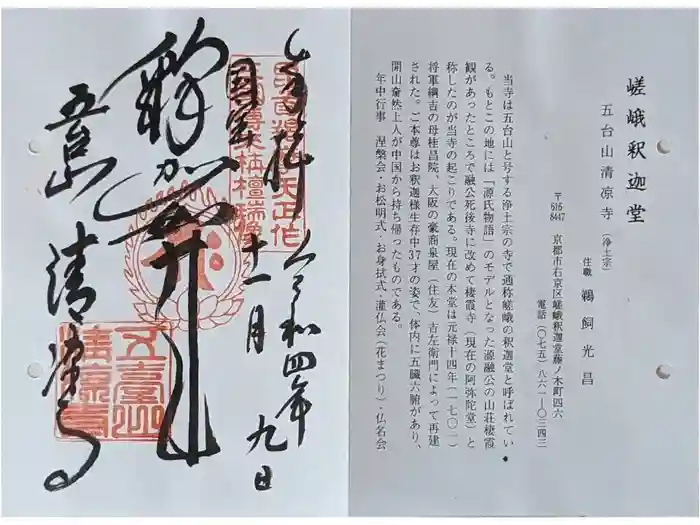 奉拝
令和四年
国宝
十一月九日
釈迦尊
五台山
清凉寺
嵯峨釈迦堂
五台山清凉寺（浄土宗）
住職 鵜飼光昌
〒616-8447 京都市右京区嵯峨釈迦堂藤ノ木町四六
電話（〇七五）八六一―〇三四三
当寺は五台山と号する浄土宗の寺で通称嵯峨の釈迦堂と呼ばれてい
る。もとこの地には「源氏物語」のモデルとなった源融公の山荘棲霞
観があったところで融公死後寺に改めて棲霞寺（現在の阿弥陀堂）と
称したのが当寺の起こりである。現在の本堂は元禄十四年（一七〇一）
将軍綱吉の母桂昌院、大阪の豪商泉屋（住友）吉左衛門によって再建
された。ご本尊はお釈迦様生存中37才の姿で、体内に五臓六腑があり、
開山奝然上人が中国から持ち帰ったものである。
年中行事 涅槃会・お松明式・お身拭式・灌仏会（花まつり）・仏名会